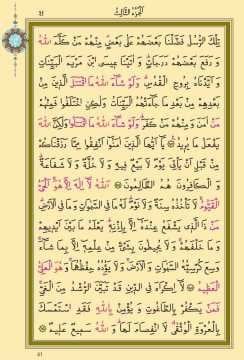 الجزء الثالث
تِلْكَ الرُّسُلُ فَضَّلْنَا بَعْضَهُمْ عَلَى بَعْضٍ مِنْهُمْ مَنْ كَلَّمَ اللهُ
وَرَفَعَ بَعْضَهُمْ دَرَجَاتٍ وَآتَيْنَا عِيسَى ابْنَ مَرْيَمَ الْبَيِّنَاتِ
وَأَيَّدْنَاهُ بِرُوحِ الْقُدُسِ وَلَوْ شَاءَ اللهُ مَا اقْتَتَلَ الَّذِينَ مِنْ
بَعْدِهِمْ مِنْ بَعْدِ مَا جَاءَتْهُمُ الْبَيِّنَاتُ وَلَكِنِ اخْتَلَفُوا فَمِنْهُمْ
مَنْ آمَنَ وَمِنْهُمْ مَنْ كَفَرَ وَلَوْ شَاءَ اللهُ مَا اقْتَتَلُوا وَلَكِنَّ اللهَ
يَفْعَلُ مَا يُرِيدُ يَا أَيُّهَا الَّذِينَ آمَنُوا أَنْفِقُوا مِمَّا رَزَقْنَاكُمْ
مِنْ قَبْلِ أَنْ يَأْتِيَ يَوْمٌ لَا بَيْعٌ فِيهِ وَلَا خُلَّةٌ وَلَا شَفَاعَةٌ
وَالْكَافِرُونَ هُمُ الظَّالِمُونَ اللهُ لَا إِلَهَ إِلَّا هُوَ الْحَيُّ
الْقَيُّومُ لَا تَأْخُذُهُ سِنَةٌ وَلَا نَوْمٌ لَهُ مَا فِي السَّمَاوَاتِ وَمَا فِي الْأَرْضِ
مَنْ ذَا الَّذِي يَشْفَعُ عِنْدَهُ إِلَّا بِإِذْنِهِ يَعْلَمُ مَا بَيْنَ أَيْدِيهِمْ
وَمَا خَلْفَهُمْ وَلَا يُحِيطُونَ بِشَيْءٍ مِنْ عِلْمِهِ إِلَّا بِمَا شَاءَ
وَسِعَ كُرْسِيُّهُ السَّمَاوَاتِ وَالْأَرْضَ وَلَا يَئُودُهُ حِفْظُهُمَا وَهُوَ الْعَلِيُّ
الْعَظِيمُ لَا إِكْرَاهَ فِي الدِّينِ قَدْ تَبَيَّنَ الرُّشْدُ مِنَ الْغَيِّ
فَمَنْ يَكْفُرْ بِالطَّاغُوتِ وَيُؤْمِنْ بِاللهِ فَقَدِ اسْتَمْسَكَ
بِالْعُرْوَةِ الْوُثْقَى لَا انْفِصَامَ لَهَا وَاللهُ سَمِيعٌ عَلِيمٌ